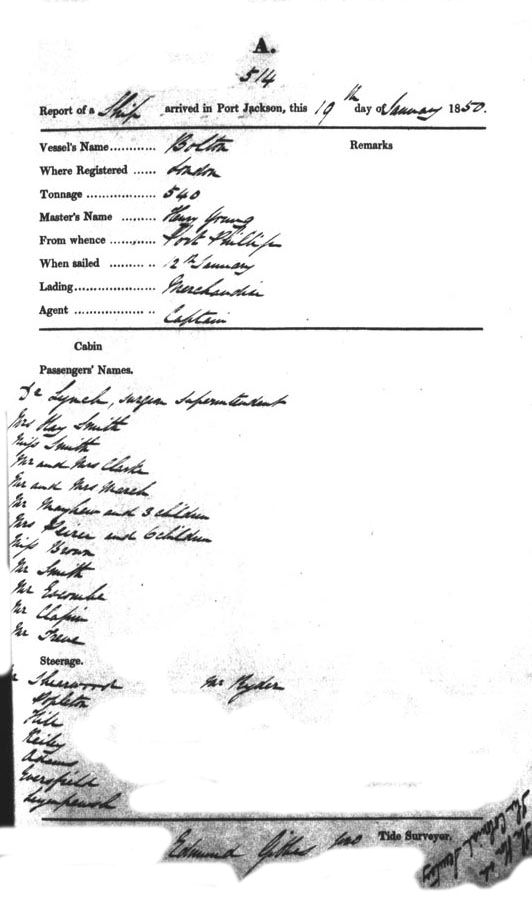 A.
514
Report of a Ship arrived in Port Jackson, this 19th day of January 1850.
Vessel's Name............ Bolton
Remarks
Where Registered ...... London
Tonnage .................. 540
Master's Name ......... Henry Young
From whence ............ Port Phillip
When sailed ............ 12th January
Lading..................... Merchandise
Agent ..................... Captain
Cabin
Passengers' Names.
Dr Lynch, surgeon superintendent
Mrs Kay Smith
Miss Smith
Mr and Mrs Clarke
Mr and Mrs March
Mr Mayhew and 3 children
Mrs and 6 children
Miss Brown
Mr Smith
Mr
Mr Clapin
Mr
Steerage.
Sherwood Mr Ryder
Stapleton
Hill
Keily
Adams
Eversfield
Edmund Gibbes Tide Surveyor.